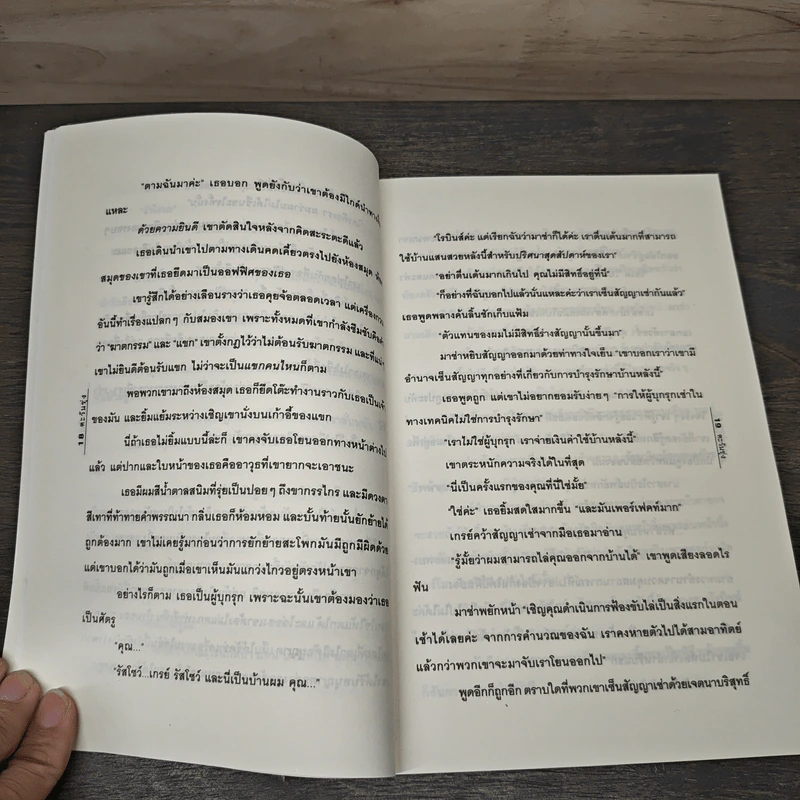 "ตามฉันมาค่ะ" เธอบอก พูดยังกับว่าเขาต้องมีไกด์นำทาง
แหละ
ด้วยความยินดี เขาตัดสินใจหลังจากคิดสะระตะดีแล้ว
เธอเดินนำเขาไปตามทางเดินคดเคี้ยวตรงไปยังห้องสมุด
สมุดของเขาที่เธอยึดมาเป็นออฟฟิศของเธอ
เขารู้สึกได้อย่างเลือนรางว่าเธอคุยจ้อตลอดเวลา แต่เครื่อง
อันนี้ทำเรื่องแปลกๆ กับสมองเขา เพราะทั้งหมดที่เขากำลังซึมซับคือ
ว่า "ฆาตกรรม" และ "แขก" เขาตั้งกฎไว้ว่าไม่ต้อนรับฆาตกรรม และที่
เขาไม่ยินดีต้อนรับแขก ไม่ว่าจะเป็นแขกคนไหนก็ตาม
พอพวกเขามาถึงห้องสมุด เธอก็ยึดโต๊ะทำงานราวกับเธอเป็น
ของมัน และยิ้มแย้มระหว่างเชิญเขานั่งบนเก้าอี้ของแขก
นี่ถ้าเธอไม่ยิ้มแบบนี้ล่ะก็ เขาคงจับเธอโยนออกทางหน้าต่างไป
แล้ว แต่ปากและใบหน้าของเธอคืออาวุธที่เขายากจะเอาชนะ
เธอมีผมสีน้ำตาลสนิมที่รุ่ยเป็นปอยๆ ถึงขากรรไกร และมีดวงตา
สีเทาที่ท้าทายคำพรรณนา กลิ่นเธอก็ห้อมหอม และบั้นท้ายนั้นยักย้ายได้
ถูกต้องมาก เขาไม่เคยรู้มาก่อนว่าการยักย้ายสะโพกมันมีถูกมีผิดด้วย
แต่เขาบอกได้ว่ามันถูกเมื่อเขาเห็นมันแกว่งไกวอยู่ตรงหน้าเขา
อย่างไรก็ตาม เธอเป็นผู้บุกรุก เพราะฉะนั้นเขาต้องมองว่าเธอ
เป็นศัตรู
"คุณ..."
"รัสโซว์...เกรย์ รัสโซว์ และนี่เป็นบ้านผม คุณ..."
18 ตะวันรุ่ง
"โรบินส์ค่ะ แต่เรียกฉันว่ามาซ่าก็ได้ค่ะ เราตื่นเต้นมากที่สามารถ
ใช้บ้านแสนสวยหลังนี้สำหรับปริศนาสุดสัปดาห์ของเรา"
"อย่าตื่นเต้นมากเกินไป คุณไม่มีสิทธิ์อยู่ที่นี่"
"ก็อย่างที่ฉันบอกไปแล้วนั่นแหละค่ะว่าเราเซ็นสัญญาเช่ากันแล้ว"
เธอพูดพลางค้นลิ้นชักเก็บแฟ้ม
"ตัวแทนของผมไม่มีสิทธิ์ร่างสัญญานั้นขึ้นมา"
มาซ่าหยิบสัญญาออกมาด้วยท่าทางใจเย็น "เขาบอกเราว่าเขามี
อำนาจเซ็นสัญญาทุกอย่างที่เกี่ยวกับการบำรุงรักษาบ้านหลังนี้"
เธอพูดถูก แต่เขาไม่อยากยอมรับง่ายๆ "การให้ผู้บุกรุกเช่าใน
ทางเทคนิคไม่ใช่การบำรุงรักษา"
"เราไม่ใช่ผู้บุกรุก เราจ่ายเงินค่าใช้บ้านหลังนี้"
เขาตระหนักความจริงได้ในที่สุด
"นี่เป็นครั้งแรกของคุณที่นี่ใช่มั้ย"
"ใช่ค่ะ" เธอยิ้มสดใสมากขึ้น "และมันเพอร์เฟคท์มาก"
เกรย์คว้าสัญญาเช่าจากมือเธอมาอ่าน
"รู้มั้ยว่าผมสามารถไล่คุณออกจากบ้านได้" เขาพูดเสียงลอดไร
ฟัน
มาซ่าพยักหน้า "เชิญคุณดำเนินการฟ้องขับไล่เป็นสิ่งแรกในตอน
เช้าได้เลยค่ะ จากการคำนวณของฉัน เราคงหายตัวไปได้สามอาทิตย์
แล้วกว่าพวกเขาจะมาจับเราโยนออกไป"
พูดอีกก็ถูกอีก ตราบใดที่พวกเขาเซ็นสัญญาเช่าด้วยเจตนาบริสุทธิ์
19 ตะวันรุ่ง